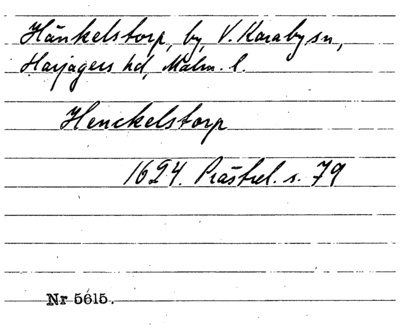 Hänkelstorp, by, V. Karaby sn,
Harjagers hd, Malm. l.
Henckelstorp
1624. Prästrel. s. 79
Nr 5615.